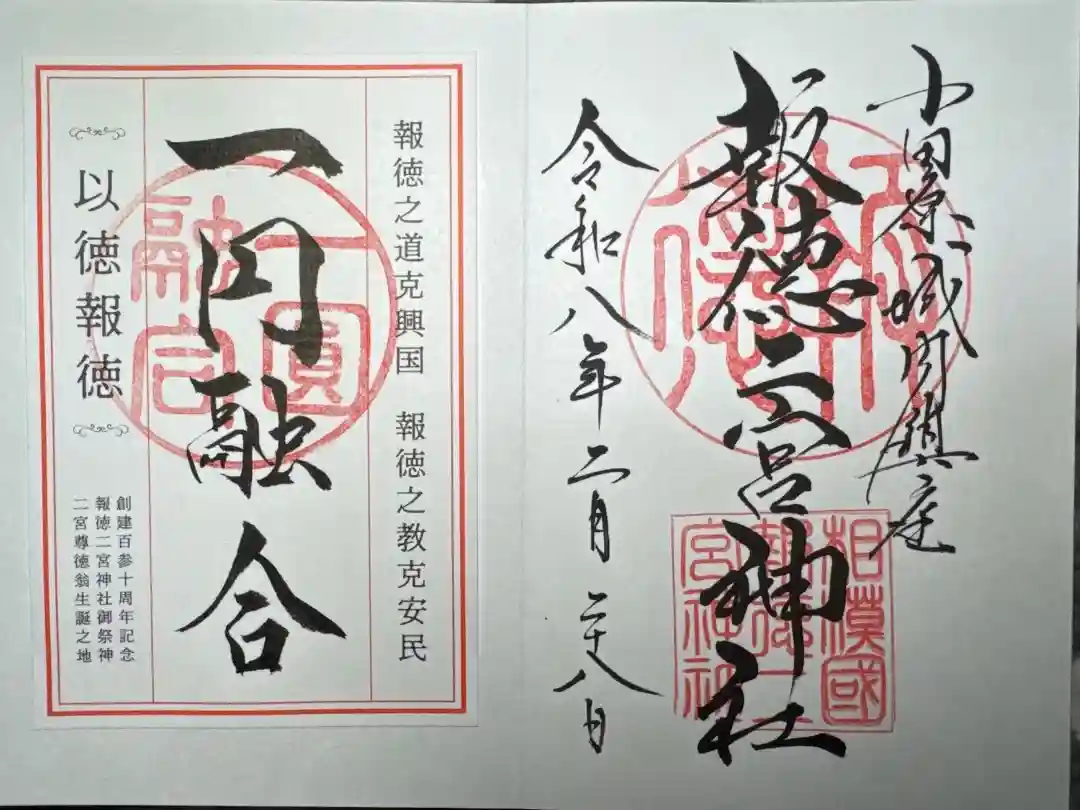 小田原城内鎮座
報徳二宮神社
相模國
報徳二
宮神社
令和八年二月二十八日
報徳之道克興国 報徳之教克安民
一円融合
一圓
融合
以徳報徳
創建百参十周年記念
報徳二宮神社御祭神
二宮尊徳翁生誕之地